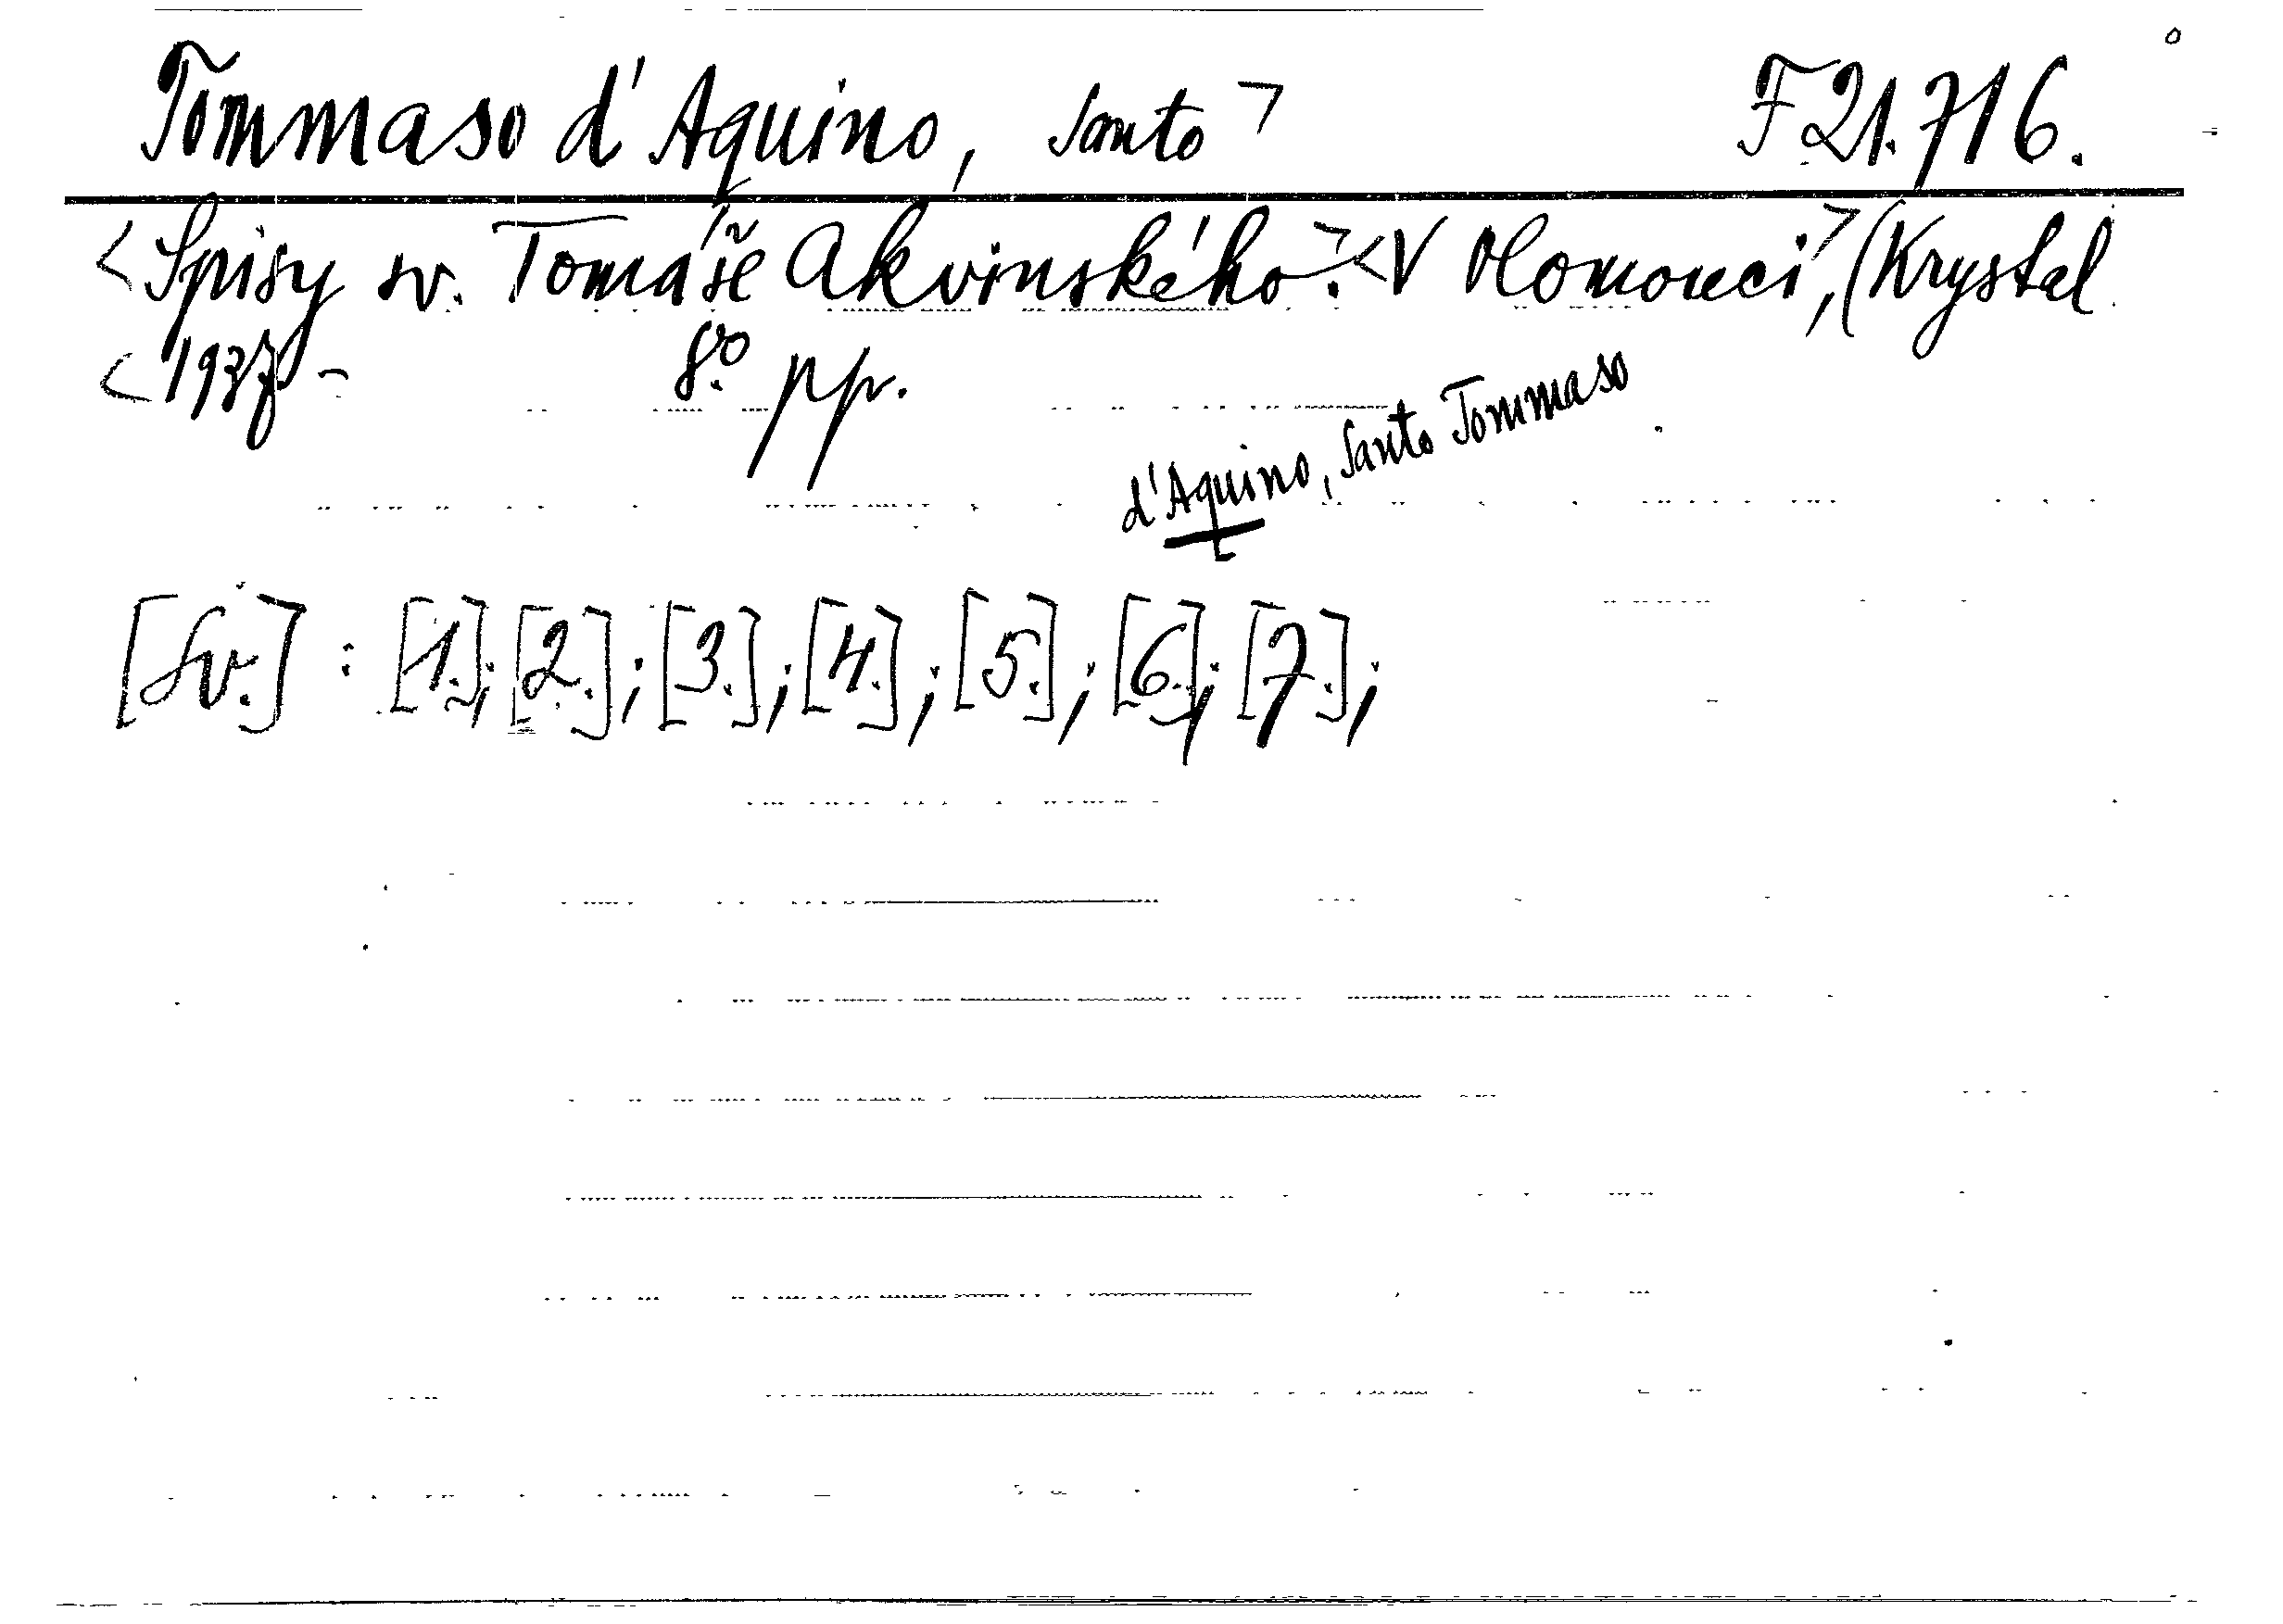 Tommaso d'Aquino, santo> F 21.716.
<Spisy sv. Tomáše Akvinského.><V Olomouci>, (Krystal
<1937 - 8.º pp.
d'Aquino, Santo Tommaso
[Sv.] : [1.]; [2.]; [3.]; [4.]; [5.]; [6.]; [7.];